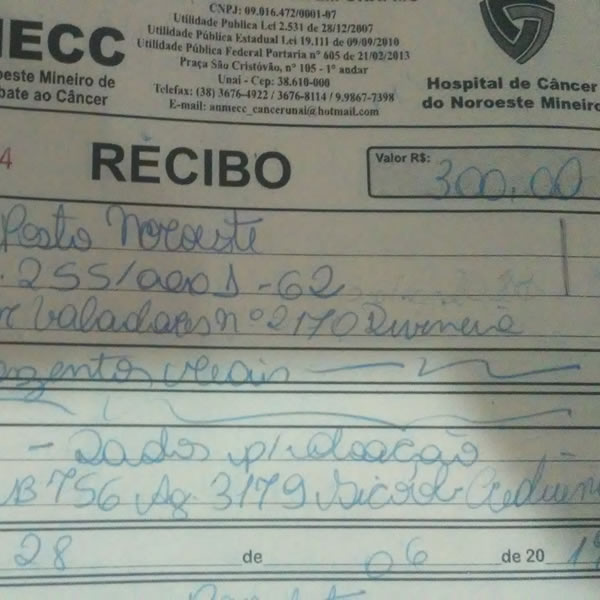 CNPJ: 09.016.472/0001-07
Utilidade Publica Lei 2.531 de 28/12/2007
Utilidade Pública Estadual Lei 19.111 de 09/09/2010
Utilidade Pública Federal Portaria nº 605 de 21/02/2013
Praça São Cristóvão, nº 105 - 1º andar
Unaí - Cep: 38.610-000
Telefax: (38) 3676-4922 / 3676-8114 / 9.9867-7398
E-mail: anmecc_cancerunai@hotmail.com
MECC
oeste Mineiro de
bate ao Câncer
Hospital de Câncer
do Noroeste Mineiro
4
RECIBO
Valor R$: 300,00
Posto Noroeste
255/0001-62
Valadares nº 2170
zentos reais
- Dados p/ doação -
756 Ag. 3179 Sicoob
28 de 06 de 20 19